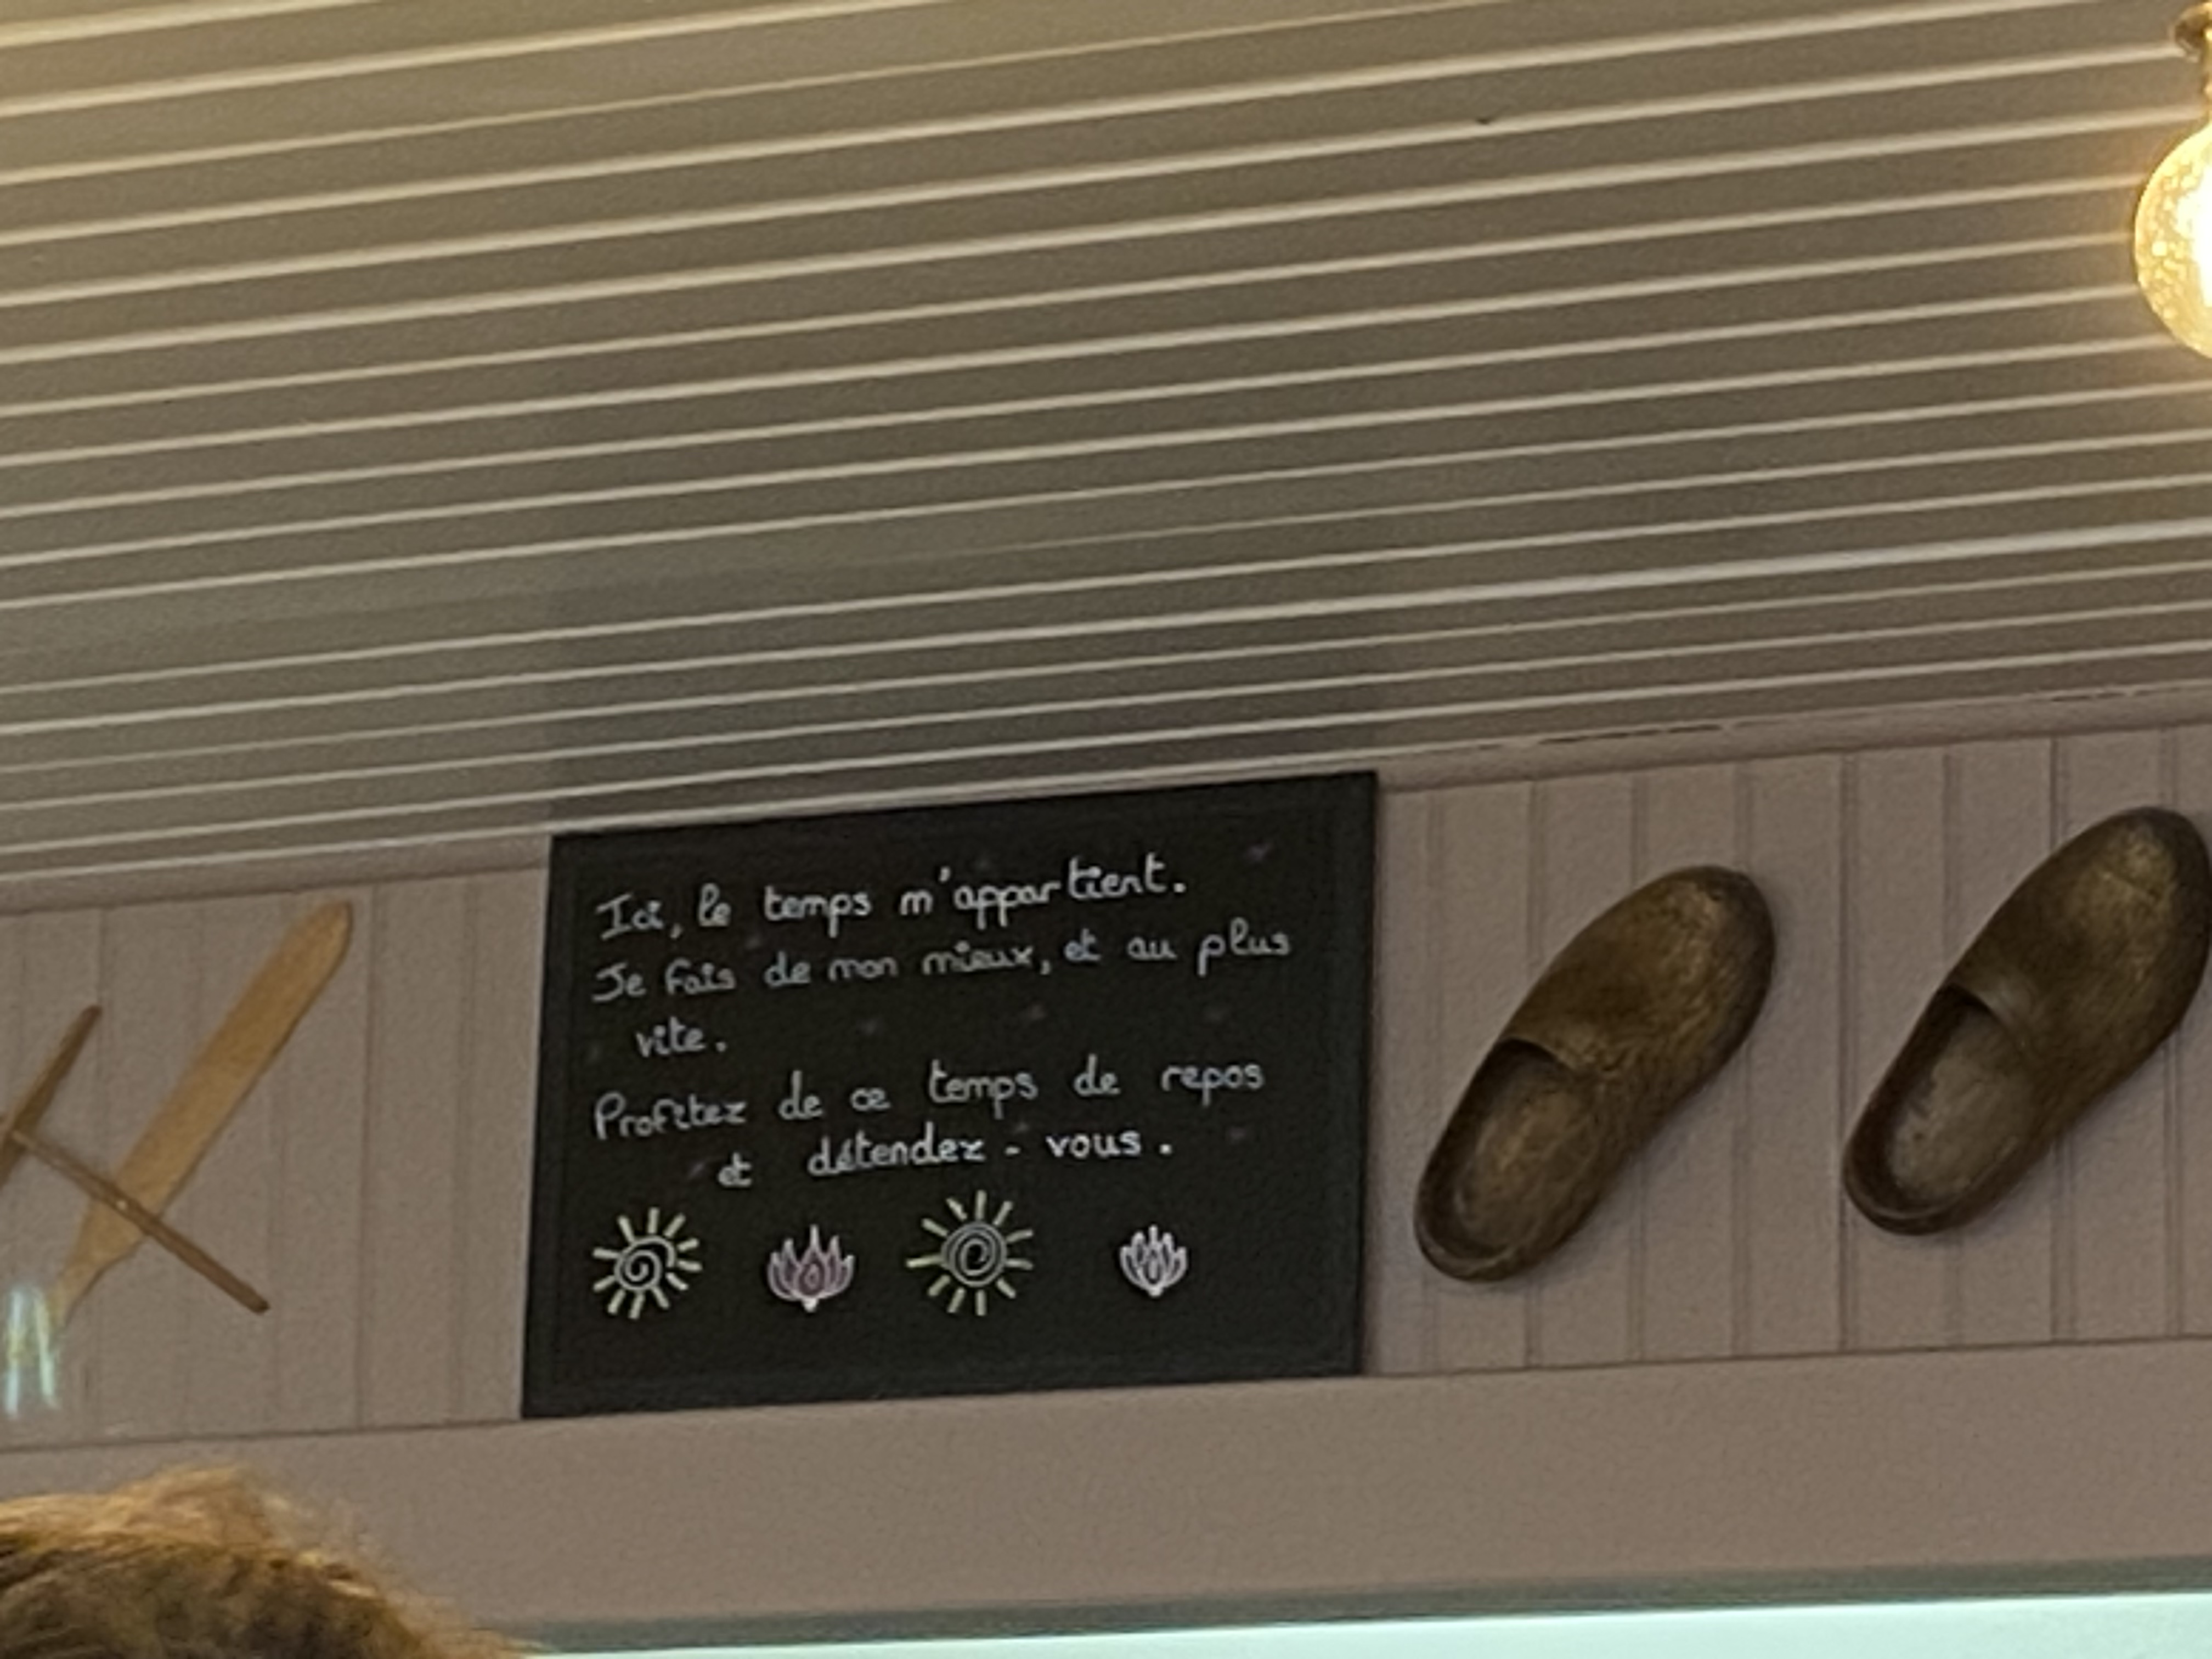 Ici, le temps m'appartient.
Je fais de mon mieux, et au plus
vite.
Profitez de ce temps de repos
et détendez-vous.